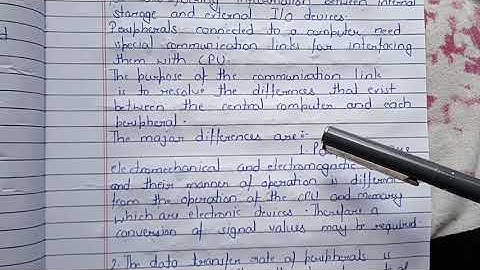 between internal
storage and external I/O devices.
Peripherals connected to a computer need
special communication links for interfacing
them with CPU.
The purpose of the communication link
is to resolve the differences that exist
between the central computer and each
peripheral.
The major differences are:-
1.
electromechanical and electromagnetic
and their manner of operation is different
from the operation of the CPU and memory
which are electronic devices. Therefore a
conversion of signal values may be required.
2. The data transfer rate of peripherals is